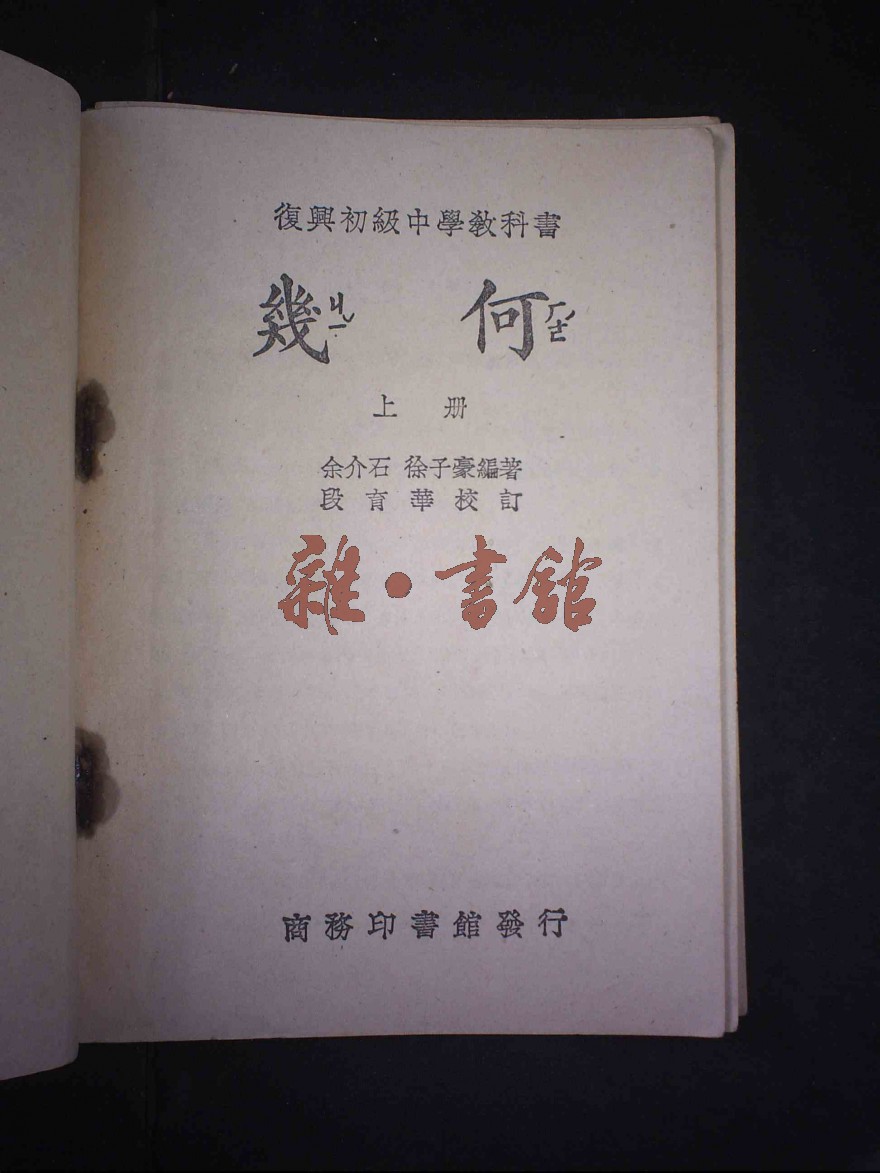 復興初級中學教科書
幾ㄐㄧˇ 何ㄏㄜˊ
上 册
余介石 徐子豪編著
段育華校訂
雜·書館
商務印書館發行